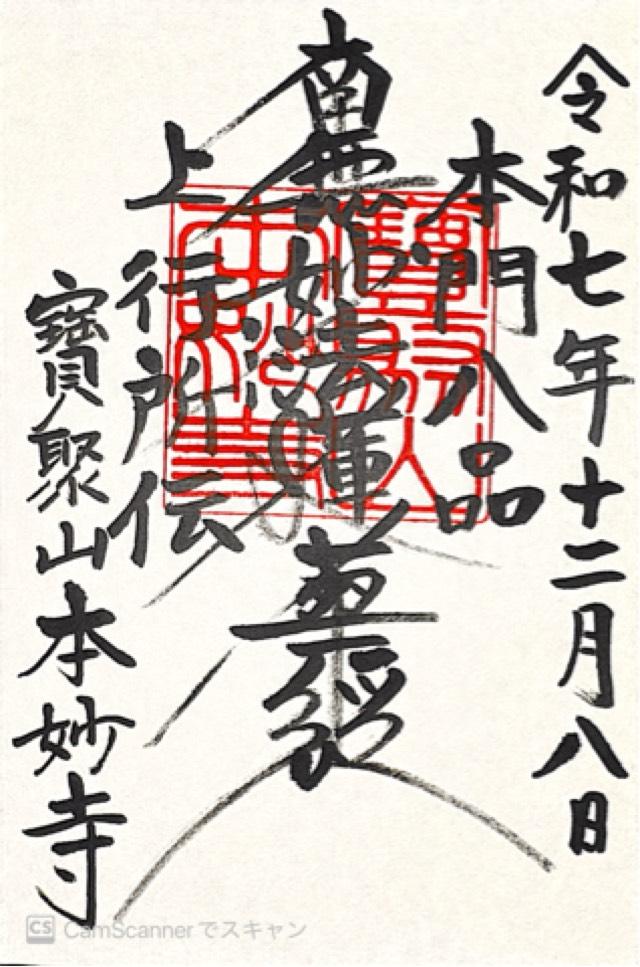 令和七年十二月八日
本門八品
南無妙法蓮華経
上行所伝
寶聚山本妙寺
CS CamScannerでスキャン